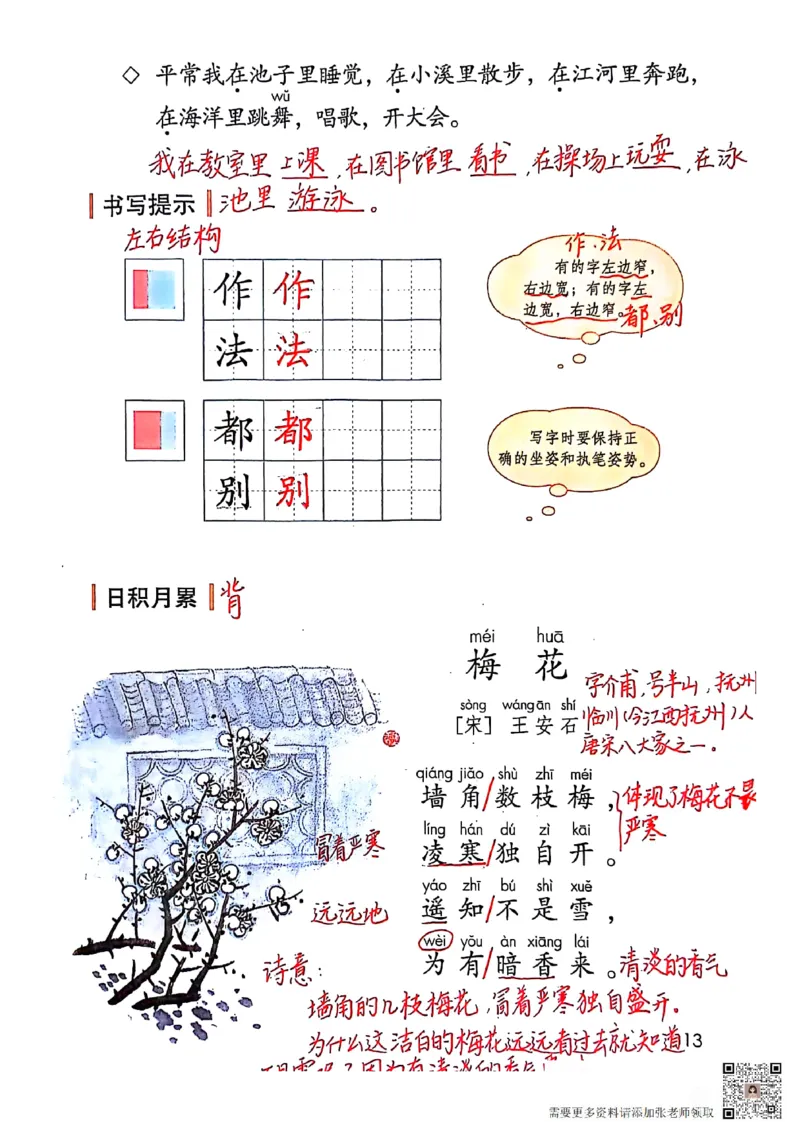 ◇ 平常我在池子里睡觉，在小溪里散步，在江河里奔跑，
wǔ
在海洋里跳舞，唱歌，开大会。
我在教室里上课，在图书馆里看书，在操场上玩耍，在泳
书写提示 池里游泳。
左右结构
作、法
有的字左边窄，
右边宽；有的字左
边宽，右边窄。都、别
作 作
法 法
都 都
别 别
写字时要保持正
确的坐姿和执笔姿势。
日积月累 背
méi huā
梅 花
字介甫，号半山，抚州
临川（今江西抚州）人
唐宋八大家之一。
sòng wáng ān shí
［宋］ 王 安 石
qiáng jiǎo shù zhī méi
墙 角/数 枝 梅，
体现了梅花不畏
严寒
líng hán dú zì kāi
凌 寒/独 自 开。
冒着严寒
yáo zhī bú shì xuě
遥 知/不 是 雪，
远远地
wèi yǒu àn xiāng lái
为 有/暗 香 来。清淡的香气
诗意：
墙角的几枝梅花，冒着严寒独自盛开。
为什么这洁白的梅花远远看过去就知道
13
因为有清淡的香气
需要更多资料请添加张老师领取